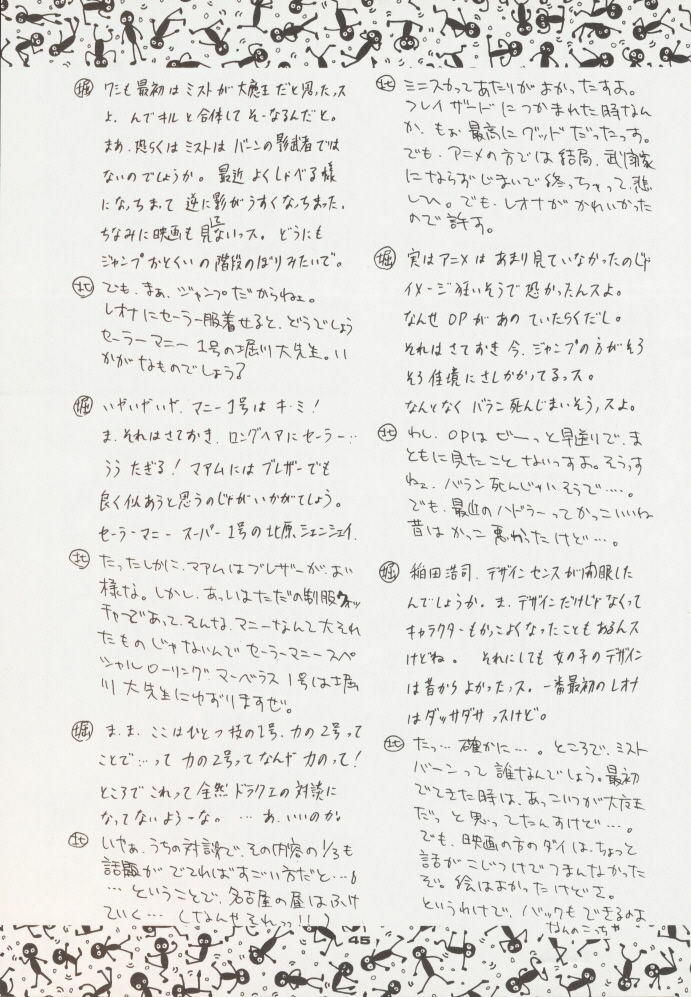 北 ミニスカってあたりがよかったすよ。
フレイザードにつかまれた時なん
か、もぉ最高にグッドだったっす。
でも、アニメの方では結局、武闘家
にならずじまいで終っちゃって、悲
しい。でも、レオナがかわいかった
ので許す。
堀 実はアニメはあまり見ていなかったのじゃ
イメージ狂いそうで恐かったんスよ。
なんせOPがあのていたらくだし。
それはさておき今、ジャンプの方がそろ
そろ佳境にさしかかってるッス。
なんとなくバラン死んじまいそうッスよ。
北 わし、OPはぜーっと早送りで、ま
ともに見たことないっすよ。そうっす
ねェ、バラン死んじゃいそうで…。
でも、最近のハドラーってかっこいいね
昔はかっこ悪かったけど…。
堀 稲田浩司、デザインセンスが開眼した
んでしょうか。ま、デザインだけじゃなくって
キャラクターもかっこよくなったこともあるんス
けどね。 それにしても女の子のデザイン
は昔からよかったッス。一番最初のレオナ
はダッサダサッスけど。
北 たっ…確かに…。ところで、ミスト
バーンって誰なんでしょう。最初
でてきた時は、あっこいつが大魔王
だっと思ってたんすけど…。
でも、映画の方のダイは、ちょっと
話がこじつけでつまんなかった
ぞ。絵はよかったけどさ。
というわけで、バックもできるのよ
なんのこっちゃ
堀 ワシも最初はミストが大魔王だと思ったッス
よ、んでキルと合体してそーなるんだと。
まあ、恐らくはミストはバーンの影武者では
ないのでしょうか。最近よくしゃべる様
になっちまって逆に影がうすくなっちまった、
ちなみに映画も見てないッス。どうにも
ジャンプおとくいの階段のぼりみたいで。
北 でも、まぁ、ジャンプだからねェ。
レオナにセーラー服着せると、どうでしょう
セーラーマニー1号の堀川大先生。い
かがなものでしょう?
堀 いやいやいや、マニー1号はキ・ミ!
ま、それはさておき、ロングヘアにセーラー…
うう たぎる!マアムにはブレザーでも
良く似あうと思うのじゃがいかがでしょう。
セーラーマニー スーパー1号の北原シェンシェイ、
北 たったしかに、マアムはブレザーが、よい
様な。しかし、あっしはただの制服ウォッ
チャーであって、そんな、マニーなんて大それ
たものじゃないんでセーラーマニースペ
シャルローリングマーベラス1号は堀
川大先生にゆずりますぜ。
堀 ま、ま、ここはひとつ技の1号、力の2号って
ことで…って力の2号ってなんや力のって!
ところでこれって全然ドラクエの対談に
なってないよーな。…あ、いいのか。
北 いやぁ、うちの対談で、その内容の1/3も
話題がでてればすごい方だと…。
…ということで、名古屋の昼はふけ
ていく…(なんやそれっ!!)
45